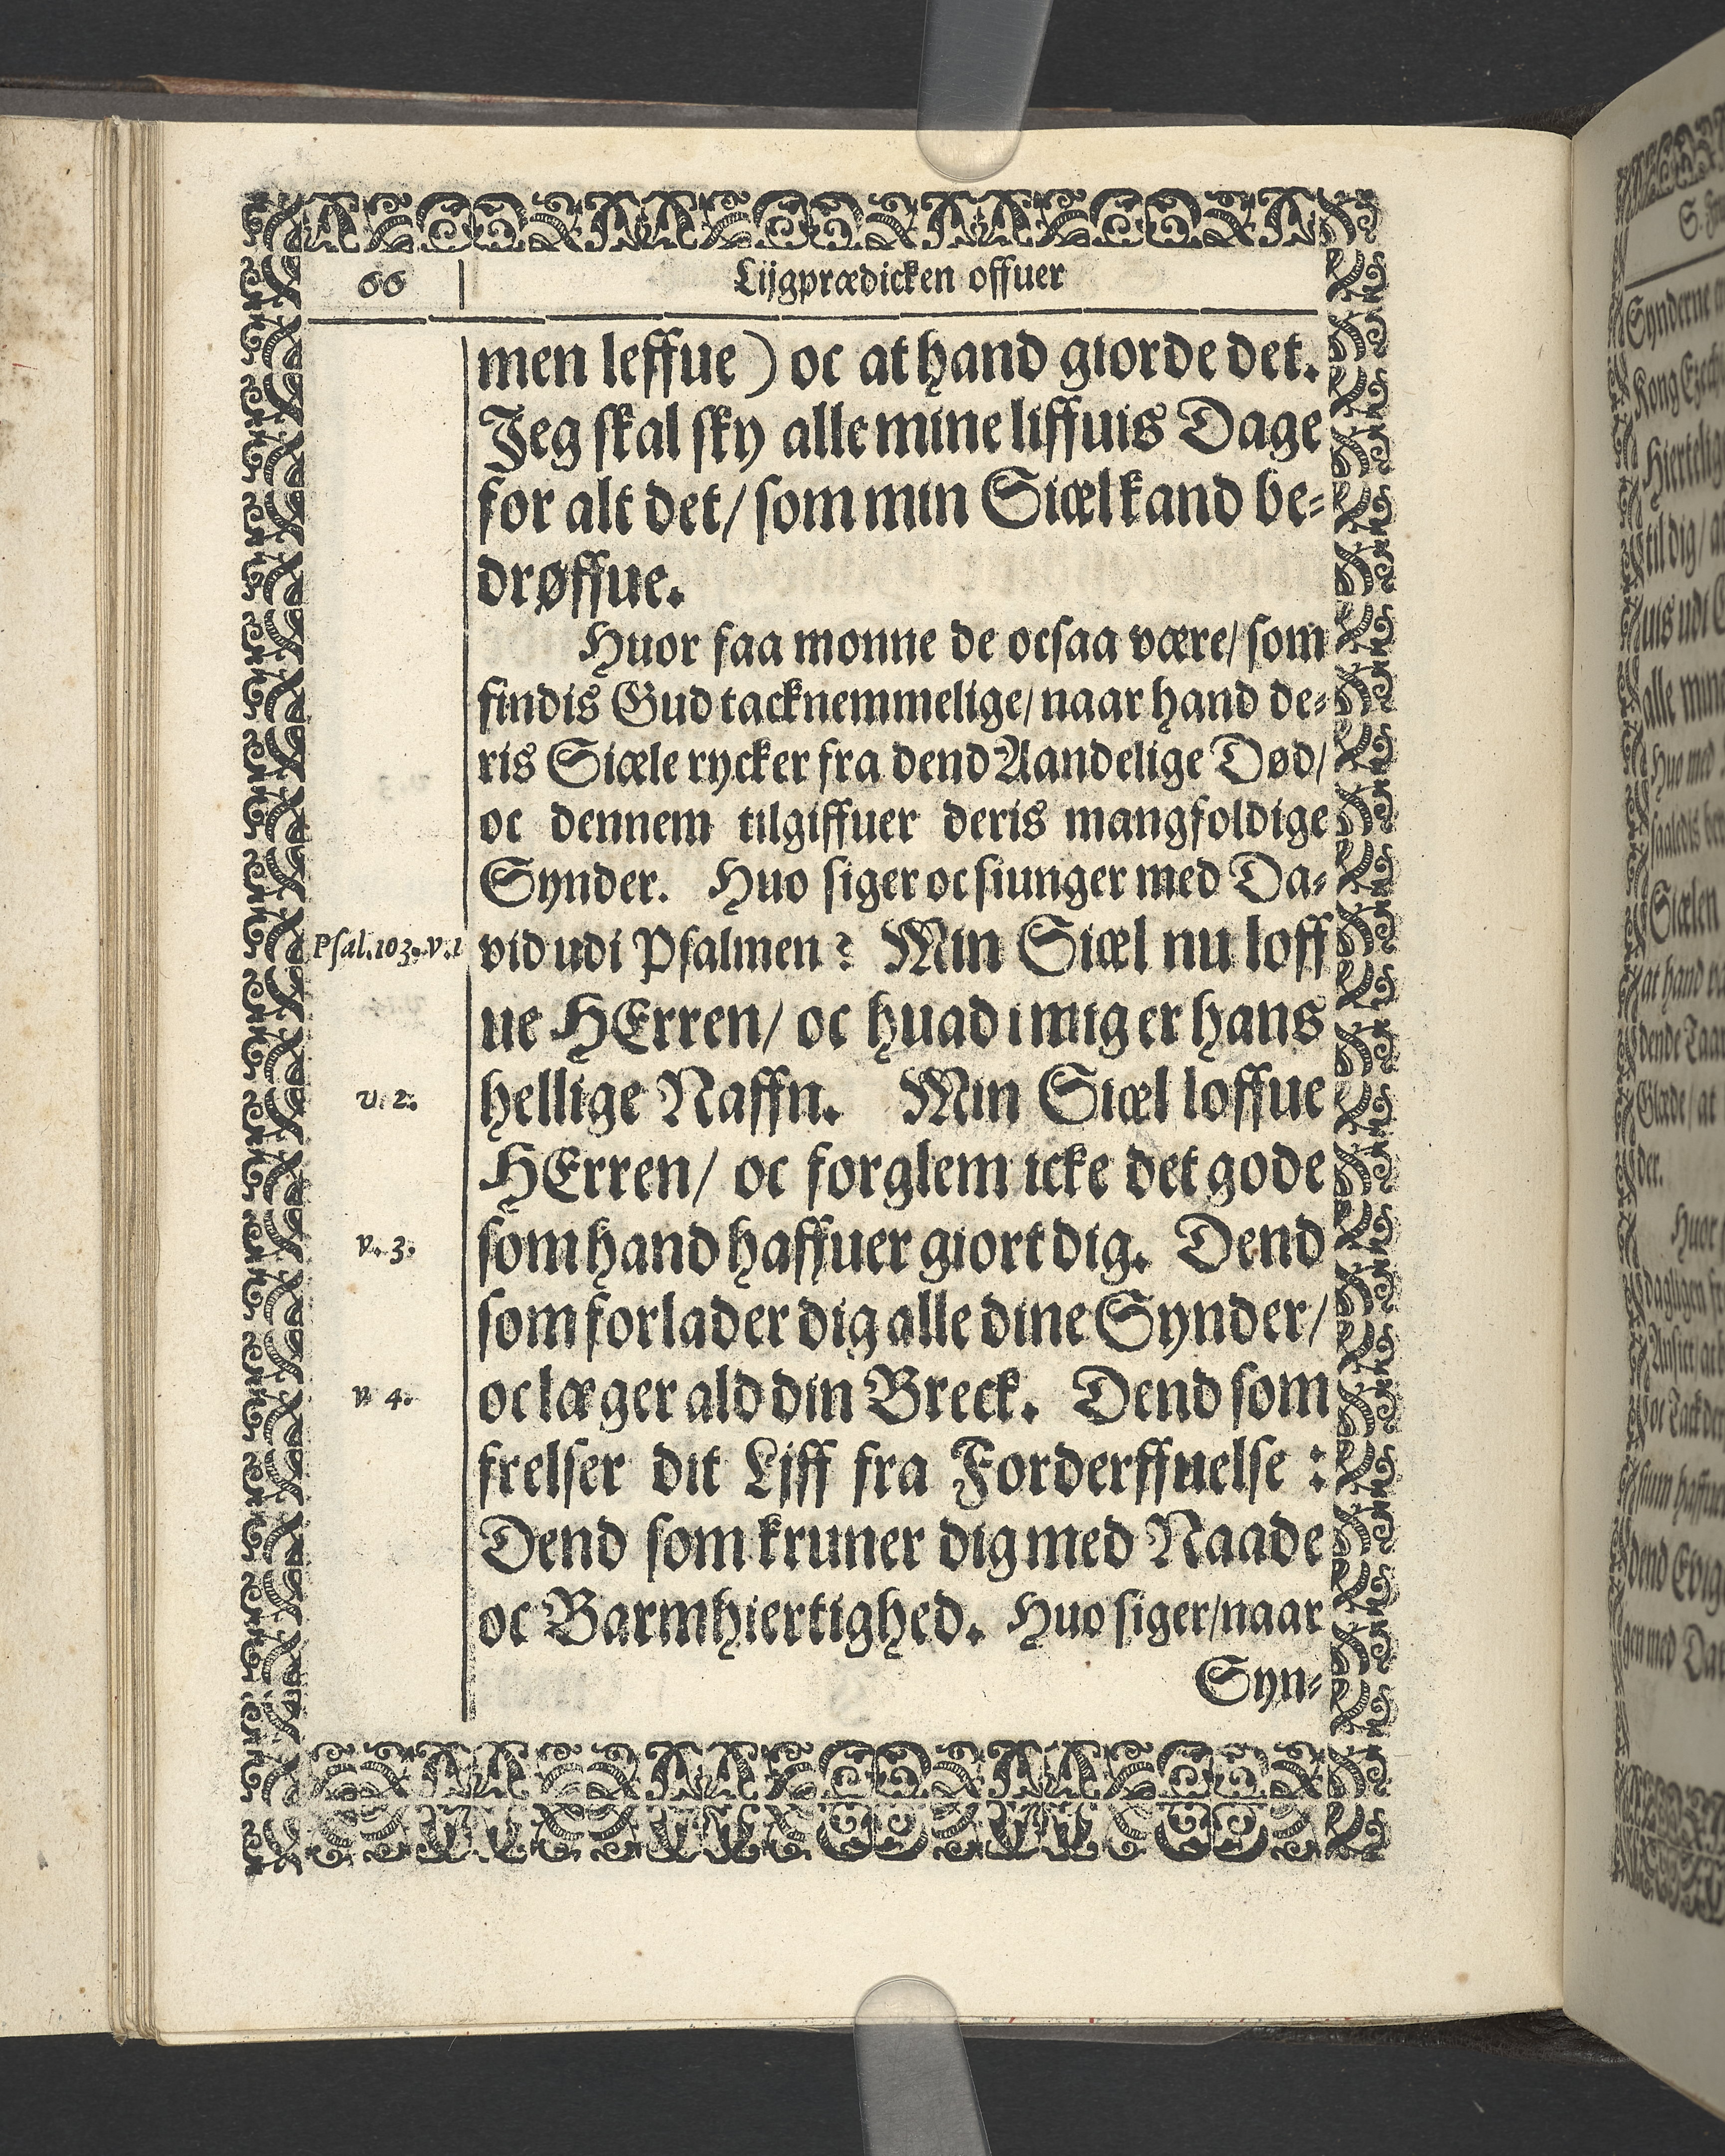 66
Lijgprædicken offuer
men leffue) oc at hand giorde det.
Jeg skal sky alle mine liffuis Dage
for alt det/ som min Siæl kand be-
drøffue.
Huor faa monne de ocsaa være/ som
findis Gud tacknemmelige/ naar hand de-
ris Siæle rycker fra dend Aandelige Død/
oc dennem tilgiffuer deris mangfoldige
Synder. Huo siger oc siunger med Da-
Psal.103.v.1
vid udi Psalmen? Min Siæl nu loff
ue HErren/ oc huad i mig er hans
v. 2.
hellige Naffn. Min Siæl loffue
HErren/ oc forglem icke det gode
v. 3.
som hand haffuer giort dig. Dend
som forlader dig alle dine Synder/
v 4.
oc læger ald din Breck. Dend som
frelser dit Liff fra Forderffuelse:
Dend som kruner dig med Naade
oc Barmhiertighed. Huo siger/ naar
Syn-